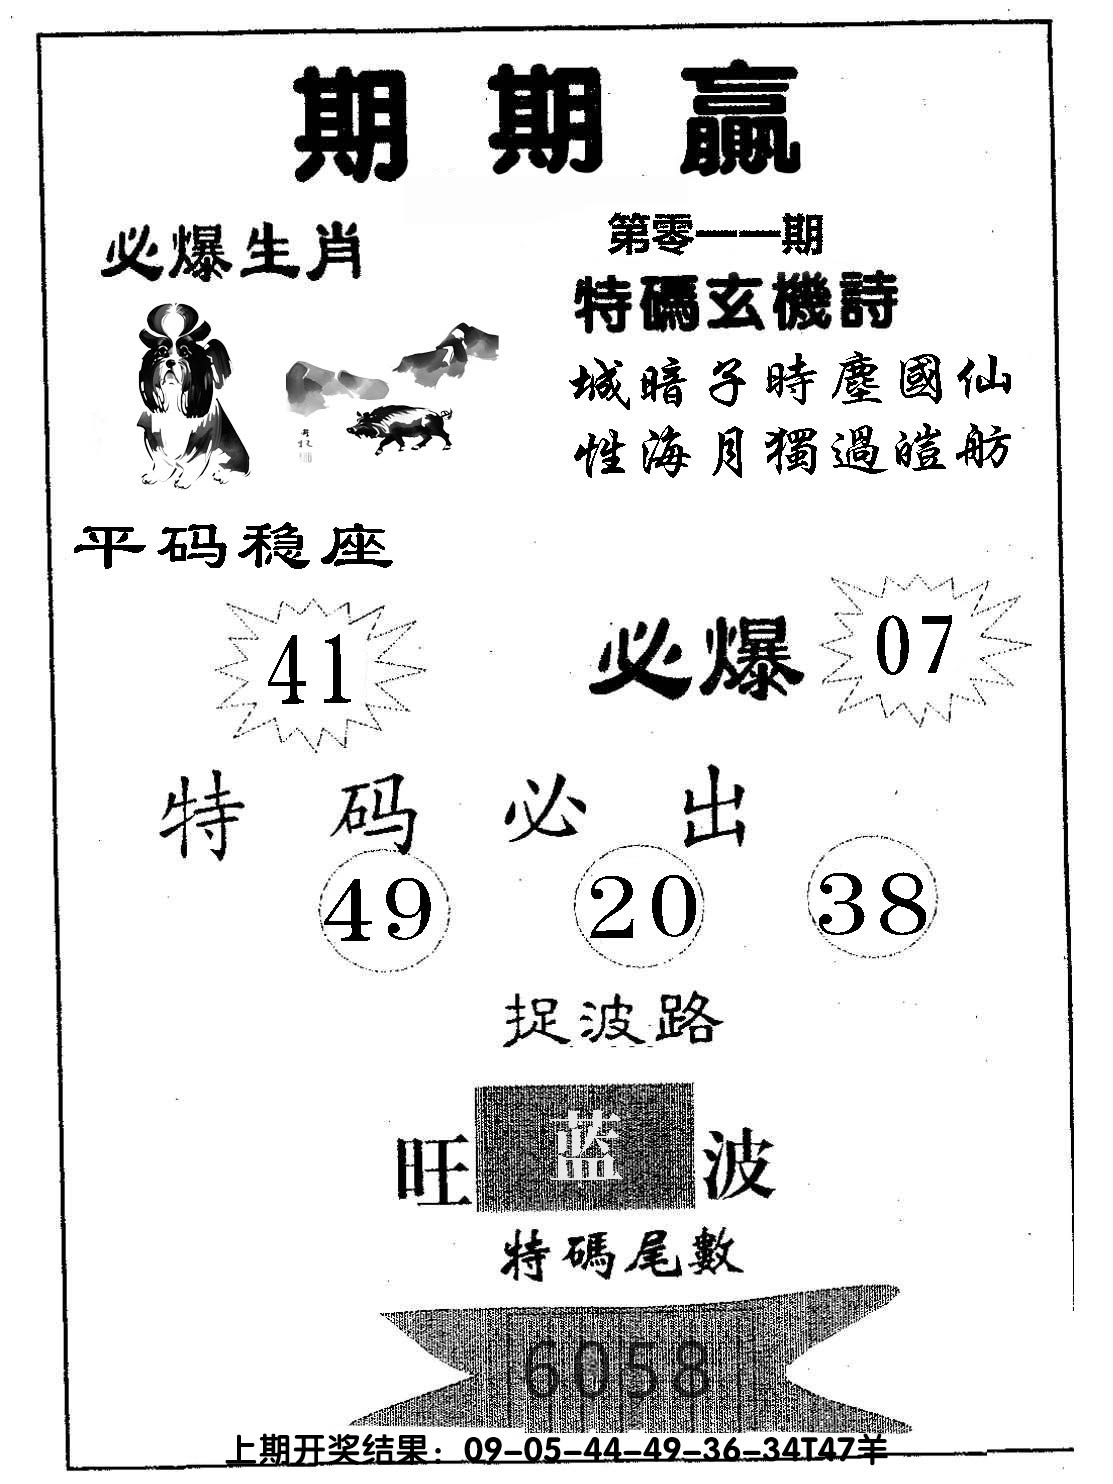 期期贏
必爆生肖
第零一一期
特碼玄機詩
城暗子時塵國仙
性海月獨過皚舫
平码稳座
41
必爆 07
特码必出
49 20 38
捉波路
旺 蓝 波
特碼尾數
6058
上期开奖结果：09-05-44-49-36-34T47羊